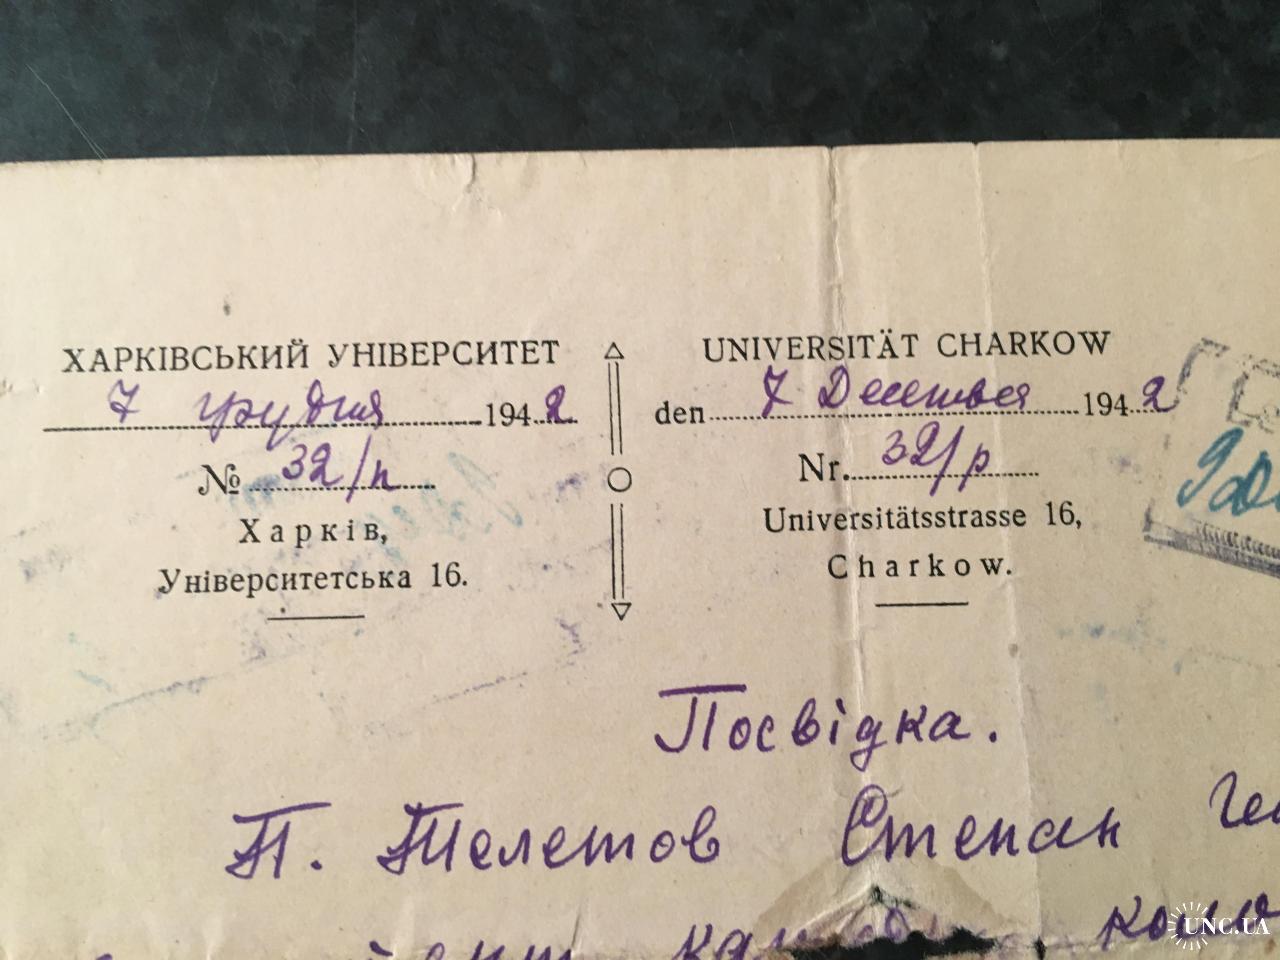 ХАРКІВСЬКИЙ УНІВЕРСИТЕТ
7 грудня 1942
№ 32/п
Харків,
Університетська 16.
UNIVERSITÄT CHARKOW
den 7 Dесетвея 1942
Nr. 32/p
Universitätsstrasse 16,
Charkow.
Посвідка.
П. Телетов Степан
UNC.UA